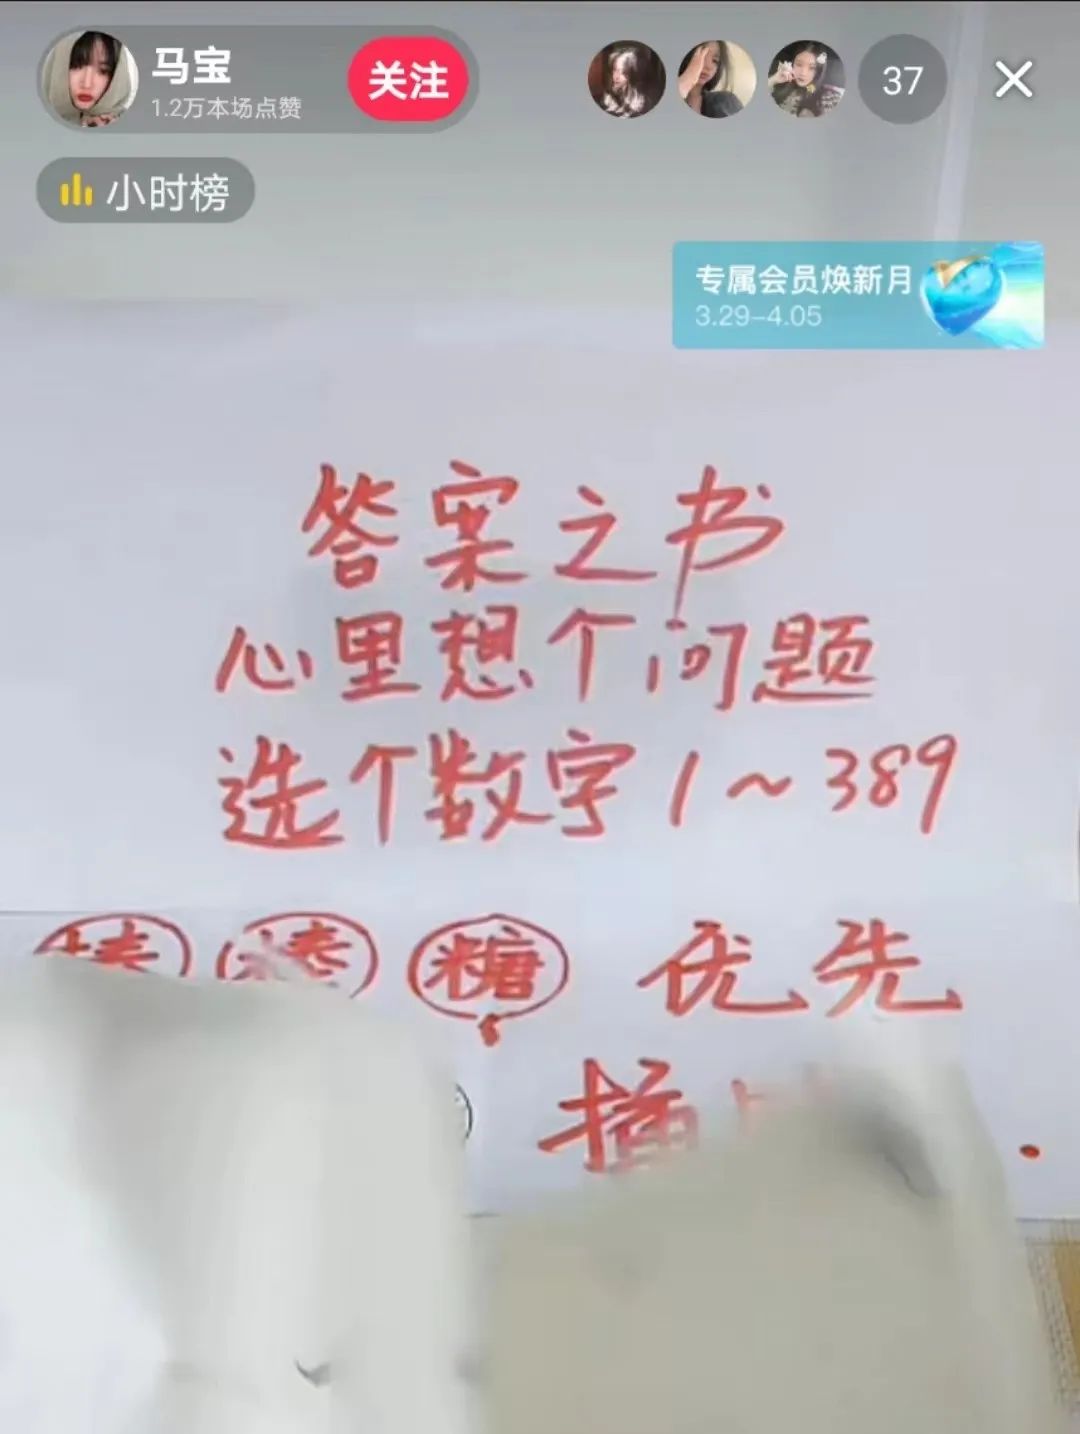 马宝
1.2万本场点赞
关注
37
小时榜
专属会员焕新月
3.29-4.05
答案之书
心里想个问题
选个数字1~389
棒棒糖 优先